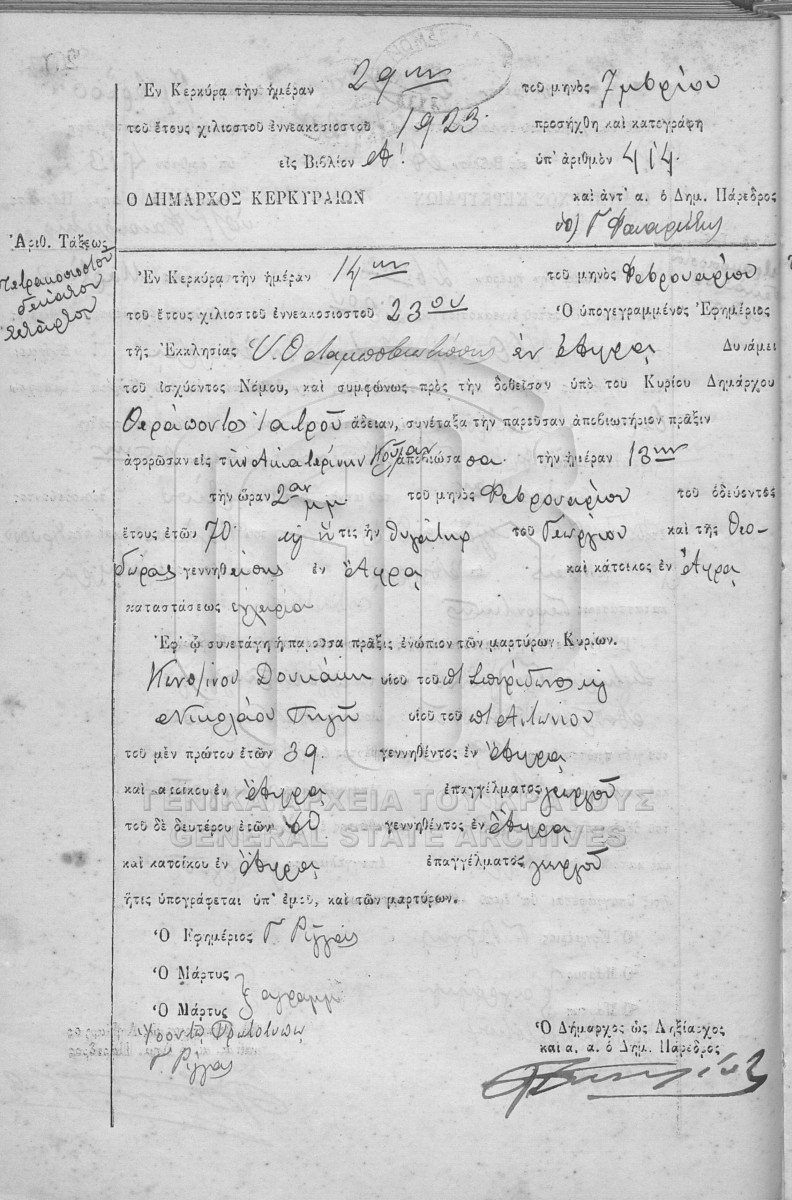 Ἐν Κερκύρᾳ τὴν ἡμέραν 29ην τοῦ μηνὸς 7μβρίου
τοῦ ἔτους χιλιοστοῦ ἐννεακοσιοστοῦ 1923 προσήχθη καὶ κατεγράφη
εἰς Βιβλίον Α! ὑπ' ἀριθμὸν 414.
Ο ΔΗΜΑΡΧΟΣ ΚΕΡΚΥΡΑΙΩΝ καὶ ἀντ' α. ὁ Δημ. Πάρεδρος
Ἀριθ. Τάξεως
Τετρακοσιοστὸν
δέκατον
τέταρτον
Ἐν Κερκύρᾳ τὴν ἡμέραν 14ην τοῦ μηνὸς Φεβρουαρίου
τοῦ ἔτους χιλιοστοῦ ἐννεακοσιοστοῦ 23ου Ὁ ὑπογεγραμμένος Ἐφημέριος
τῆς Ἐκκλησίας ἐν Ἄφρᾳ Δυνάμει
τοῦ ἰσχύοντος Νόμου, καὶ συμφώνως πρὸς τὴν δοθεῖσαν ὑπὸ τοῦ Κυρίου Δημάρχου
Θεράποντος Ἰατροῦ ἄδειαν, συνέταξα τὴν παροῦσαν ἀποβιωτήριον πρᾶξιν
ἀφορῶσαν εἰς τὴν Αἰκατερίνην ἀποβιώσασαν τὴν ἡμέραν 13ην
τὴν ὥραν 2αν μμ. τοῦ μηνὸς Φεβρουαρίου τοῦ ὁδεύοντος
ἔτους ἐτῶν 70 ἥτις ἦν θυγάτηρ τοῦ Γεωργίου καὶ τῆς Θεο-
δώρας γεννηθείσης ἐν Ἄφρᾳ καὶ κάτοικος ἐν Ἄφρᾳ
καταστάσεως
Ἐφ' ᾧ συνετάγη ἡ παροῦσα πρᾶξις ἐνώπιον τῶν μαρτύρων Κυρίων.
Κωνσ/ίνου Δουκάκη υἱοῦ τοῦ πτ Σπυρίδωνος
Νικολάου Πηγῆ υἱοῦ τοῦ πτ Ἀντωνίου
τοῦ μὲν πρώτου ἐτῶν 39. γεννηθέντος ἐν Ἄφρᾳ
καὶ κατοίκου ἐν Ἄφρᾳ ἐπαγγέλματος γεωργοῦ
ΓΕΝΙΚΑ ΑΡΧΕΙΑ ΤΟΥ ΚΡΑΤΟΥΣ
τοῦ δὲ δευτέρου ἐτῶν 60 γεννηθέντος ἐν Ἄφρᾳ
GENERAL STATE ARCHIVES
καὶ κατοίκου ἐν Ἄφρᾳ ἐπαγγέλματος γεωργοῦ
ἥτις ὑπογράφεται ὑπ' ἐμοῦ, καὶ τῶν μαρτύρων.
Ὁ Ἐφημέριος Γ Ρίγγας
Ὁ Μάρτυς
Ὁ Μάρτυς
ἀγράμμ
Γ Ρίγγας
Ὁ Δήμαρχος ὡς Ληξίαρχος
καὶ α. α. ὁ Δημ. Πάρεδρος